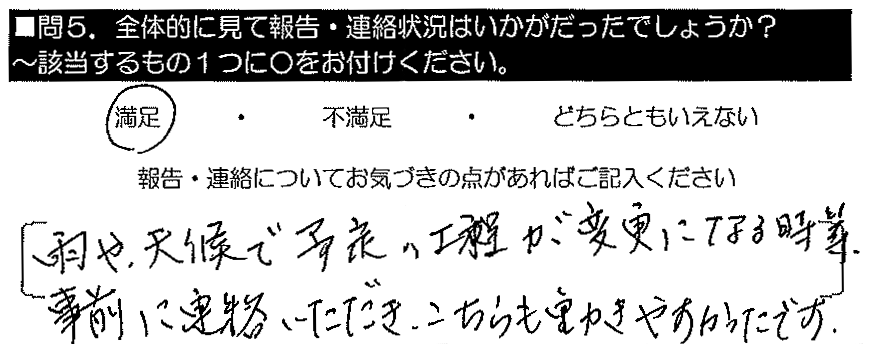 ■問5．全体的に見て報告・連絡状況はいかがだったでしょうか？
～該当するもの1つに○をお付けください。
満足 ・ 不満足 ・ どちらともいえない
報告・連絡についてお気づきの点があればご記入ください
雨や、天候で予定の工程が変更になる時等、
事前に連絡いただき、こちらも動きやすかったです。